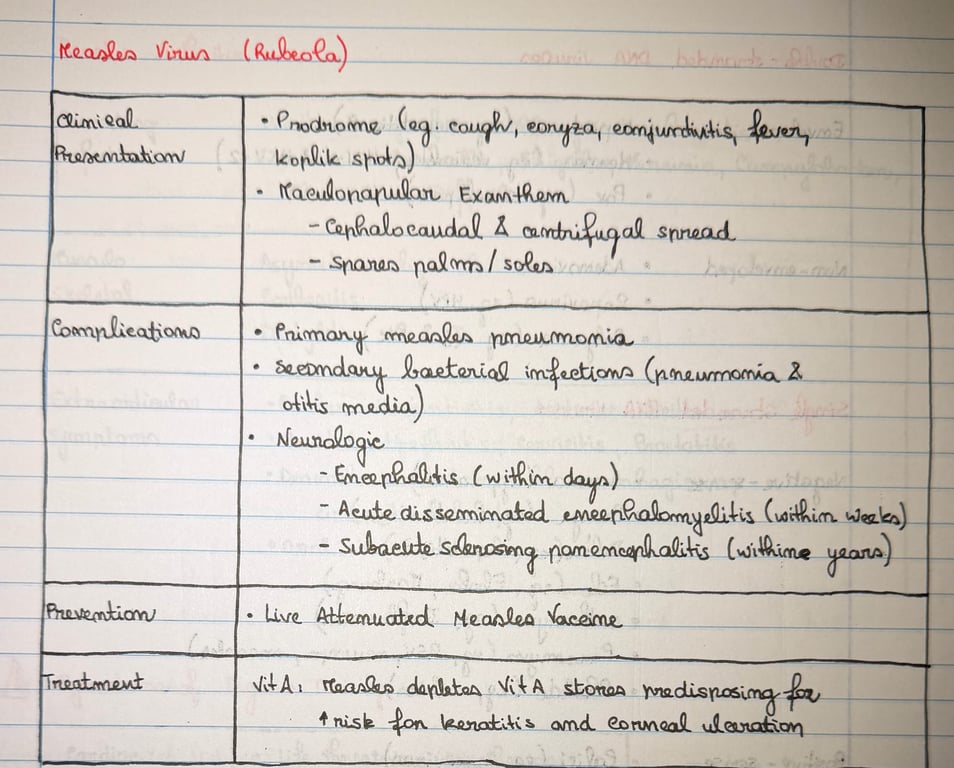 Measles Virus (Rubeola)
Clinical Presentation
• Prodrome (eg. cough, coryza, conjunctivitis, fever,
koplik spots)
• Maculopapular Exanthem
- Cephalocaudal & centrifugal spread
- Spares palms/soles
Complications
• Primary measles pneumonia
• Secondary bacterial infections (pneumonia &
otitis media)
• Neurologic
- Encephalitis (within days)
- Acute disseminated encephalomyelitis (within weeks)
- Subacute sclerosing panencephalitis (withine years)
Prevention
• Live Attenuated Measles Vaccine
Treatment
Vit A: Measles depletes Vit A stores predisposing for
↑ risk for keratitis and corneal ulceration